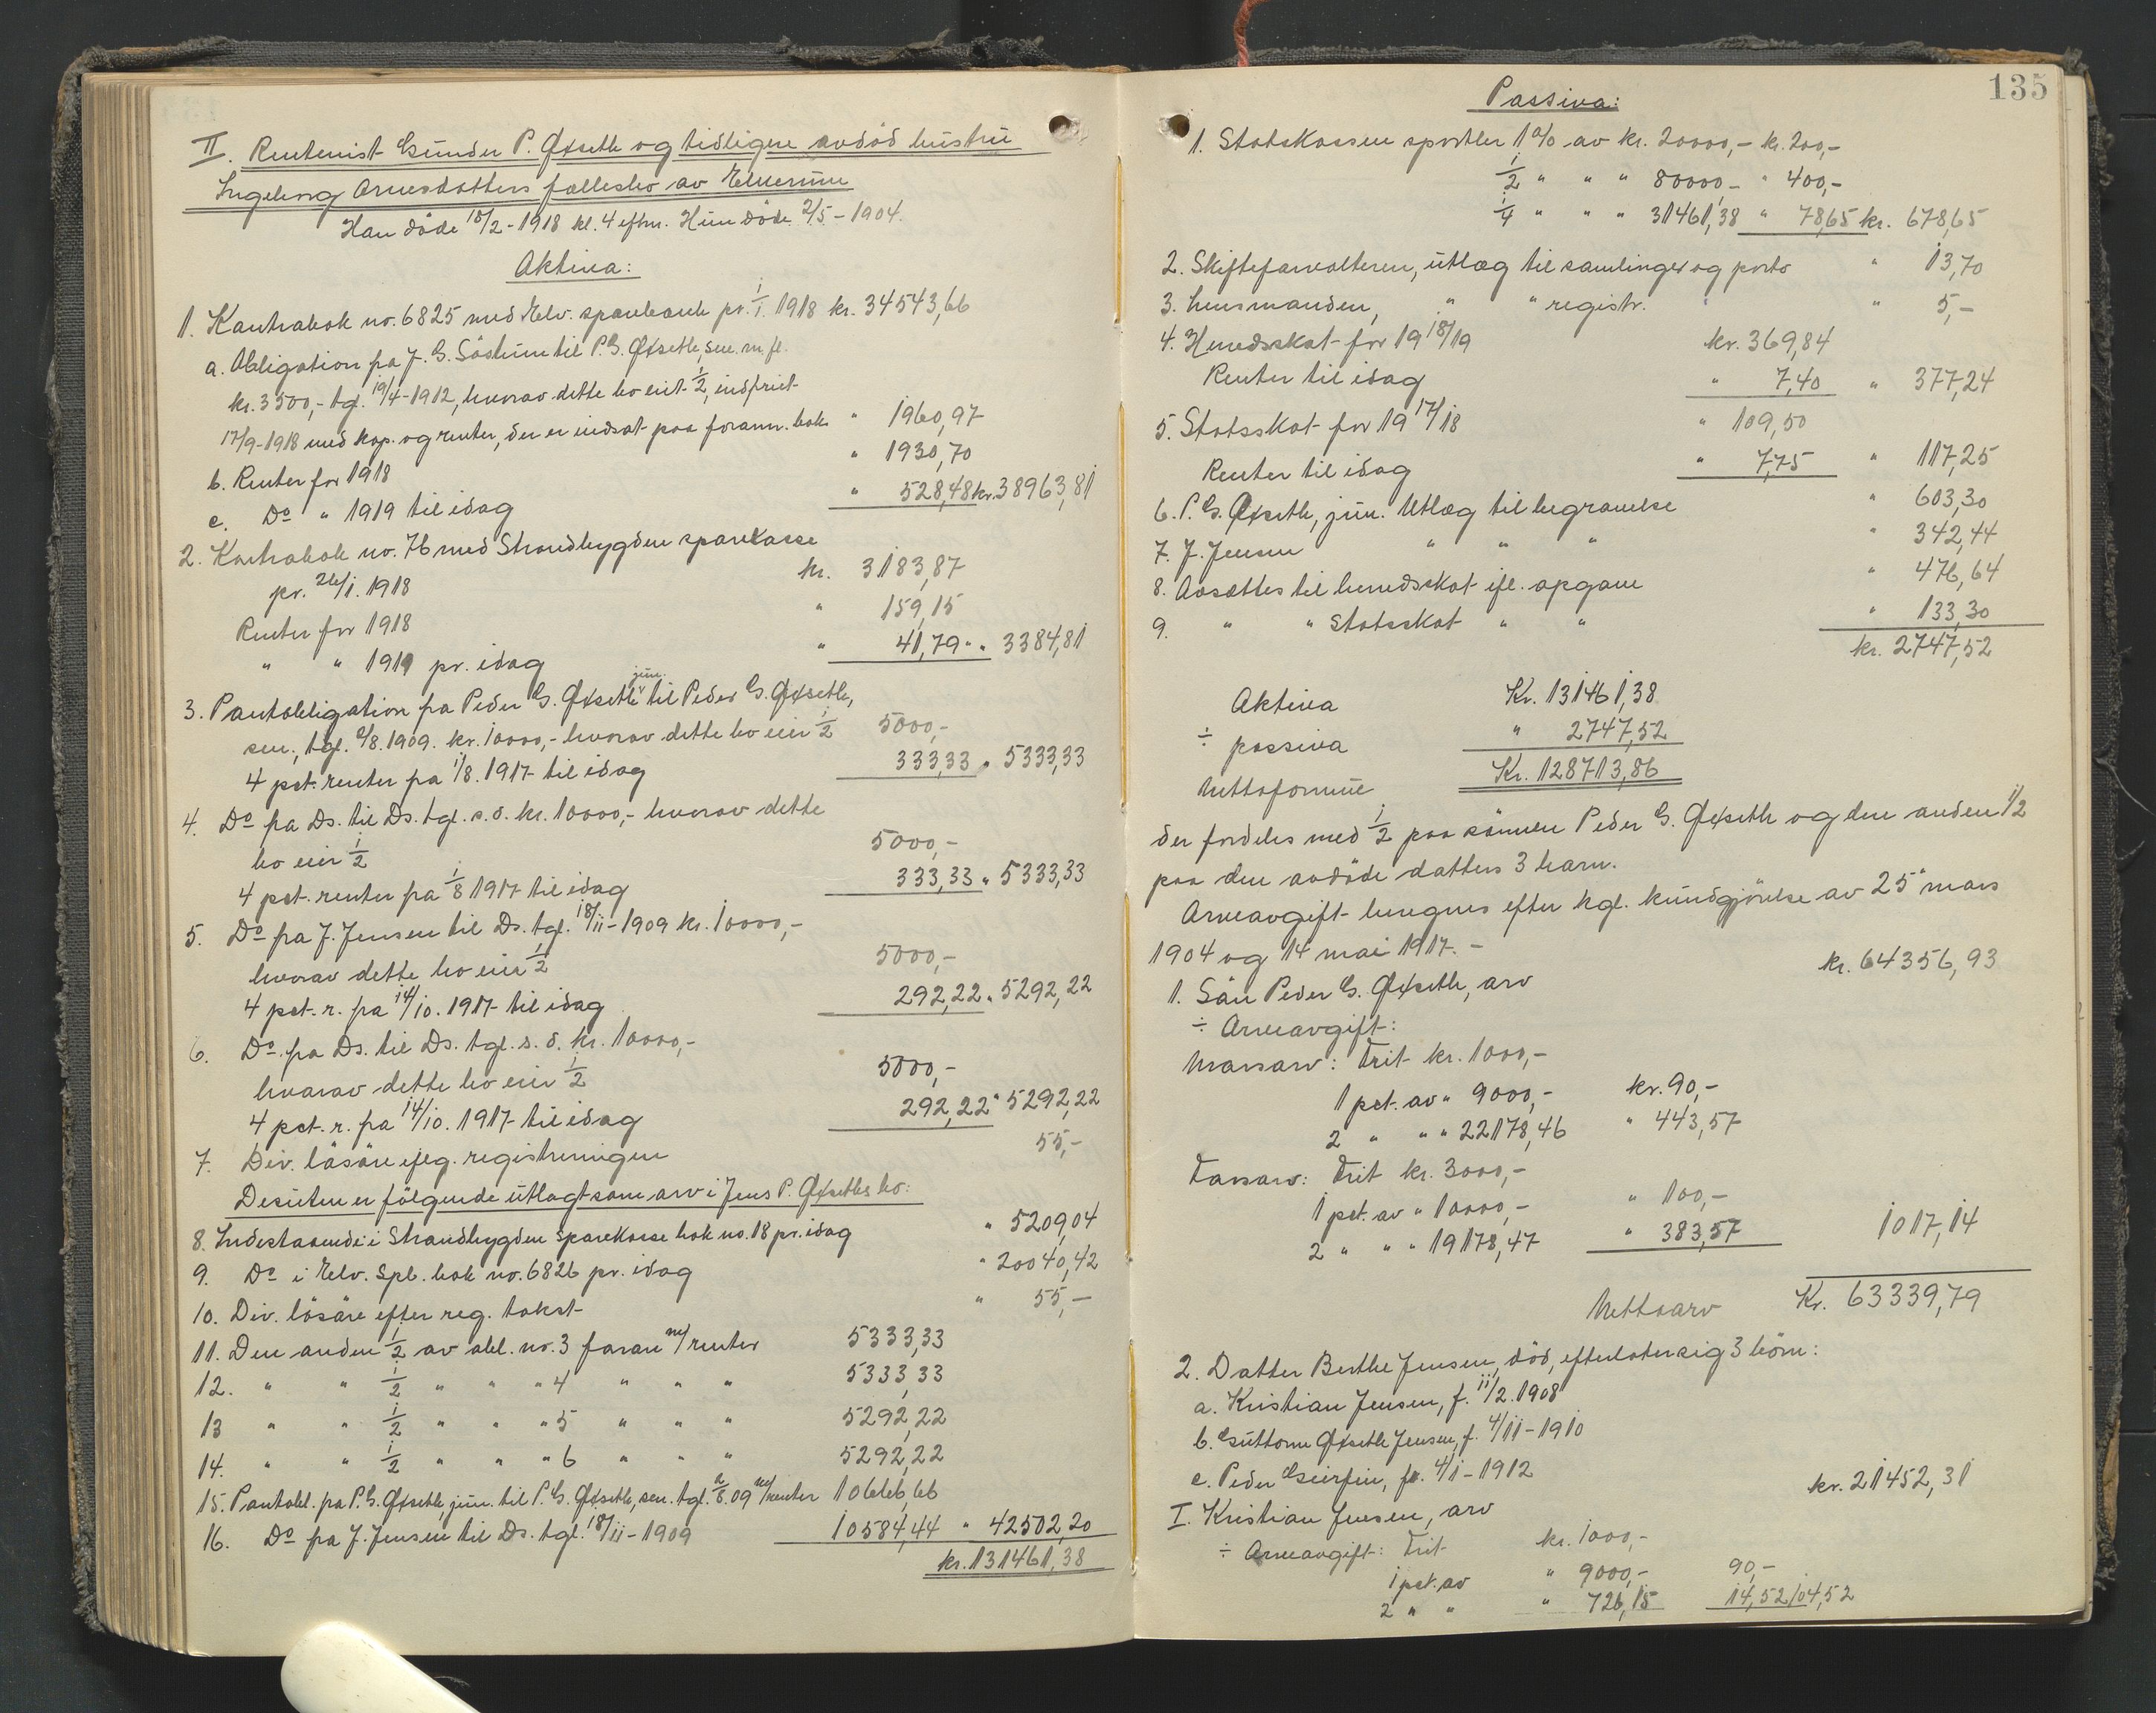 II. Rentenist Gunder P. Øxseth og tidligere avdöd hustru
Ingeborg Arnesdatters fællesbo av Elverum
Han döde 18/2-1918 kl. 4 efm. Hun döde 2/5-1904.
Aktiva:
1. Kontrabok no. 6825 med Elv. sparebank pr. 1/1. 1918 kr. 34543,66
a. Obligation fra J. G. til P. G. Øxseth, sen. m. fl.
kr. 3500,- tgl. 19/4-1912, hvorav dette bo eiet 1/2, indfriet
17/9-1918 med kap. og renter, der er indsat paa forann. bok " 1960,97
b. Renter for 1918 " 1930,70
c. Do " 1919 til idag " 528,48 kr. 38963,81
2. Kontrabok no. 76 med Strandbygden sparekasse
pr. 26/1. 1918 kr. 3183,87
Renter for 1918 " 159,15
" " 1919 pr. idag " 41,79 " " 3384,81
3. Pantobligation fra Peder G. Øxseth jun. til Peder G. Øxseth,
sen., tgl. 2/8. 1909. kr. 10000,- hvorav dette bo eier 1/2 5000,-
4 pct. renter fra 1/8. 1917 til idag 333,33 " 5333,33
4. Do fra Ds. til Ds. tgl. s. d. kr. 10000,- hvorav dette
bo eier 1/2 5000,-
4 pct. renter fra 1/8 1917 til idag 333,33 " 5333,33
5. Do fra J. Jensen til Ds. tgl. 18/11-1909 kr. 10000,-
hvorav dette bo eier 1/2 5000,-
4 pct. r. fra 14/10. 1917 til idag 292,22 " 5292,22
6. Do fra Ds. til Ds. tgl. s. d. kr. 10000,-
hvorav dette bo eier 1/2 5000,-
4 pct. r. fra 14/10. 1917 til idag 292,22 " 5292,22
7. Div. lösöre efflg. registreringen 55,-
Desuten er fölgende utlagt som arv i Jens P. Øxseths bo:
8. Indestaaende i Strandbygden Sparekasse bok no. 18 pr. idag " 5209,04
9. Do i Elv. Spb. bok no. 6826 pr. idag " 20040,42
10. Div. lösöre efter reg. takst " 55,-
11. Den anden 1/2 av obl. no. 3 foran m/renter 5333,33
12. " " 1/2 " " " 4 " " " 5333,33
13 " " 1/2 " " " 5 " " " 5292,22
14. " " 1/2 " " " 6 " " " 5292,22
15. Pantobl. fra P. G. Øxseth, jun. til P. G. Øxseth, sen. tgl. 2/8.09 m/renter 10666,66
16. Do fra J. Jensen til Ds. tgl. 18/11-1909 10584,44 " 42502,20
kr. 131461,38
135
Passiva:
1. Statskassen sportler 1 % av kr. 20000,- kr. 200,-
1/2 " " " 80000,- " 400,-
1/4 " " " 31461,38 " 78,65 kr. 678,65
2. Skifteforvalteren, utlæg til samlinger og porto " 13,70
3. Lensmanden, " " registr. " 5,-
4. Herredsskat for 1918/19 kr. 369,84
Renter til idag " 7,40 " 377,24
5. Statsskat for 1917/18 " 109,50
Renter til idag " 7,75 " 117,25
6. P. G. Øxseth, jun. Utlæg til begravelse " 603,30
7. J. Jensen " " " " 342,44
8. Avsættes til herredsskat ifl. opgave " 476,64
9. " " Statsskat " " " 133,30
kr. 2747,52
Aktiva Kr. 131461,38
÷ passiva " 2747,52
Nettoformue Kr. 128713,86
der fordeles med 1/2 paa sönnen Peder G. Øxseth og den anden 1/2
paa den avdöde datters 3 barn.
Arveavgift beregnes efter kgl. kundgjörelse av 25 mars
1904 og 14 mai 1917. -
1. Sön Peder G. Øxseth, arv kr. 64356,93
÷ Arveavgift:
Morsarv: Frit kr. 1000,-
1 pct. av " 9000,- kr. 90,-
2 " " " 22178,46 " 443,57
Farsarv: Frit kr. 3000,-
1 pct. av " 10000,- " 100,-
2 " " " 19178,47 " 383,57 1017,14
Nettoarv Kr. 63339,79
2. Datter Berthe Jensen, död, efterlater sig 3 börn:
a. Kristian Jensen, f. 11/2. 1908
b. Guttorm Øxseth Jensen, f. 4/11-1910
c. Peder Geirfin, f. 4/1-1912
I. Kristian Jensen, arv kr. 21452,31
÷ Arveavgift: Frit kr. 1000,-
1 pct. av " 9000,- 90,-
2 " " " 726,15 14,52 104,52